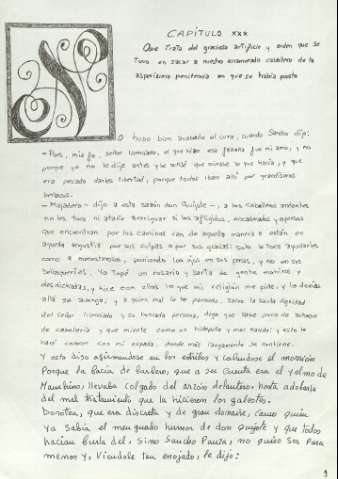 CAPÍTULO XXX
Que trata del gracioso artificio y orden que se
tuvo en sacar a nuestro enamorado caballero de la
asperísima penitencia en que se había puesto
N
O hubo bien acabado el cura, cuando Sancho dijo:
- Pues, mía fe, señor licenciado, el que hizo esa fazaña fue mi amo, y no
porque yo no le dije antes y le avisé que mirase lo que hacía, y que
era pecado darles libertad, porque todos iban allí por grandísimos
bellacos.
- Majadero - dijo a esta sazón don Quijote -, a los caballeros andantes
no les toca ni atañe averiguar si los afligidos, encadenados y opresos
que encuentran por los caminos van de aquella manera o están en
aquella angustia por sus culpas o por sus gracias: sólo le toca ayudarles
como a menesterosos, poniendo los ojos en sus penas, y no en sus
bellaquerías. Yo topé un rosario y sarta de gente mohína y
desdichada, y hice con ellos lo que mi religión me pide, y lo demás
allá se avenga; y a quien mal le ha parecido, salvo la santa dignidad
del señor licenciado y su honrada persona, digo que sabe poco de achaque
de caballería y que miente como un hideputa y mal nacido; y esto le
haré conocer con mi espada, donde más largamente se contiene.
Y esto dijo afirmándose en los estribos y calándose el morrión
Porque la bacía de barbero, que a su cuenta era el yelmo de
Mambrino, llevaba colgada del arzón delantero, hasta adobarla
del mal tratamiento que la hicieron los galeotes.
Dorotea, que era discreta y de gran donaire, como quien
ya sabía el menguado humor de don Quijote y que todos
hacían burla dél, sino Sancho Panza, no quiso ser para
menos y, viéndole tan enojado, le dijo:
9